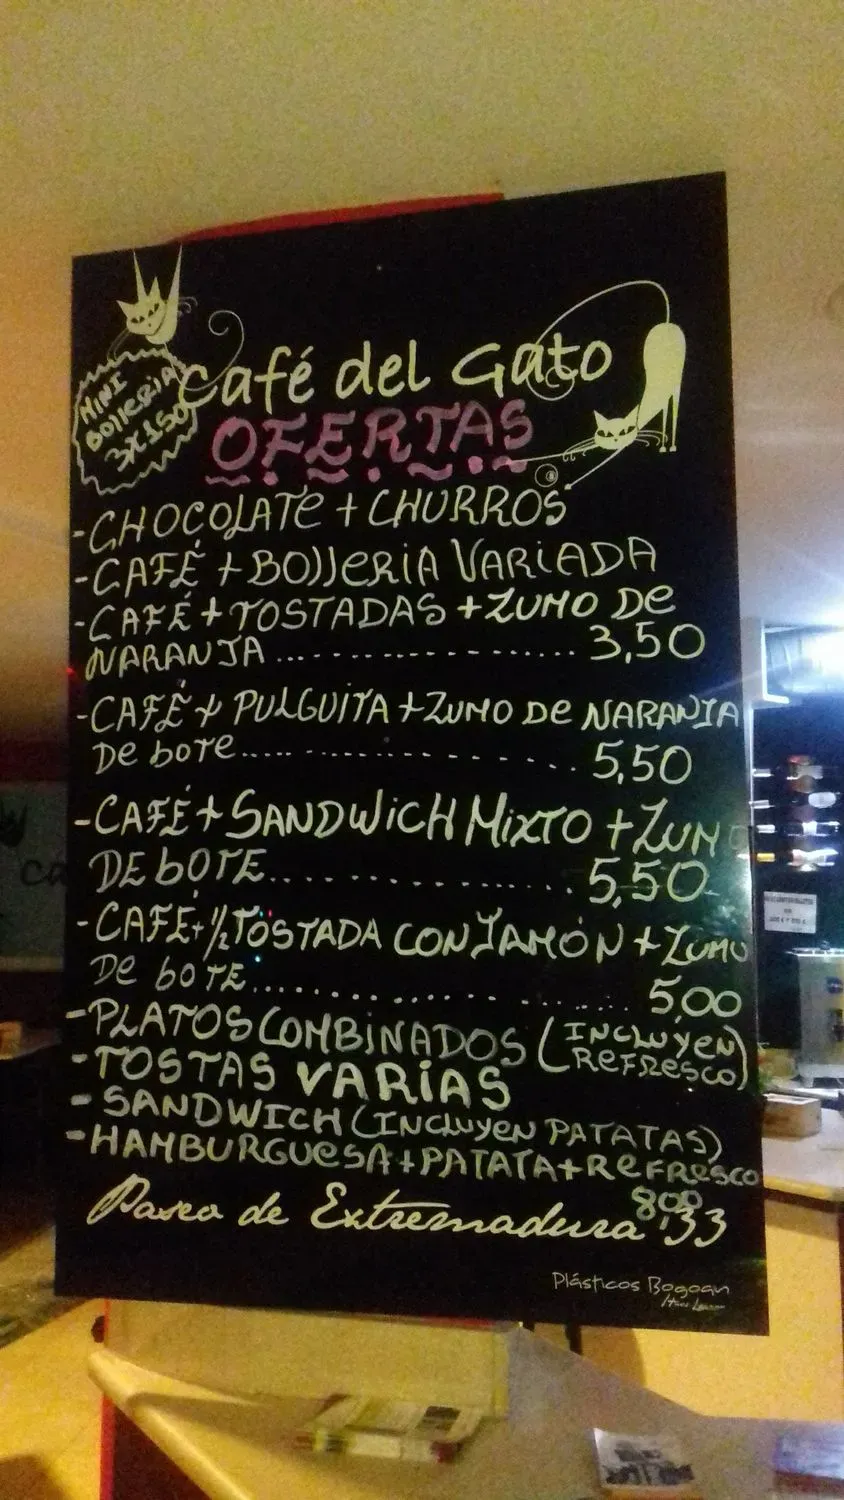 Café del Gato
MINI
BOLLERIA
3X150
OFERTAS
-CHOCOLATE + CHURROS
-CAFÉ + BOLLERIA VARIADA
-CAFÉ + TOSTADAS + ZUMO DE
NARANJA ................ 3,50
-CAFÉ + PULGUITA + ZUMO DE NARANJA
De bote.................. 5,50
-CAFÉ + SANDWICH MIXTO + ZUM
DE bOTE.................. 5,50
-CAFÉ + 1/2 TOSTADA CON JAMÓN + ZUMO
De bOTE...................... 5,00
-PLATOS COMBINADOS (INCLUYEN
REFRESCO)
-TOSTAS VARIAS
-SANDWICH (INCLUYEN PATATAS)
-HAMBURGUESA + PATATA + REFRESCO
8,00
Paseo de Extremadura 33
Plásticos Bogoan